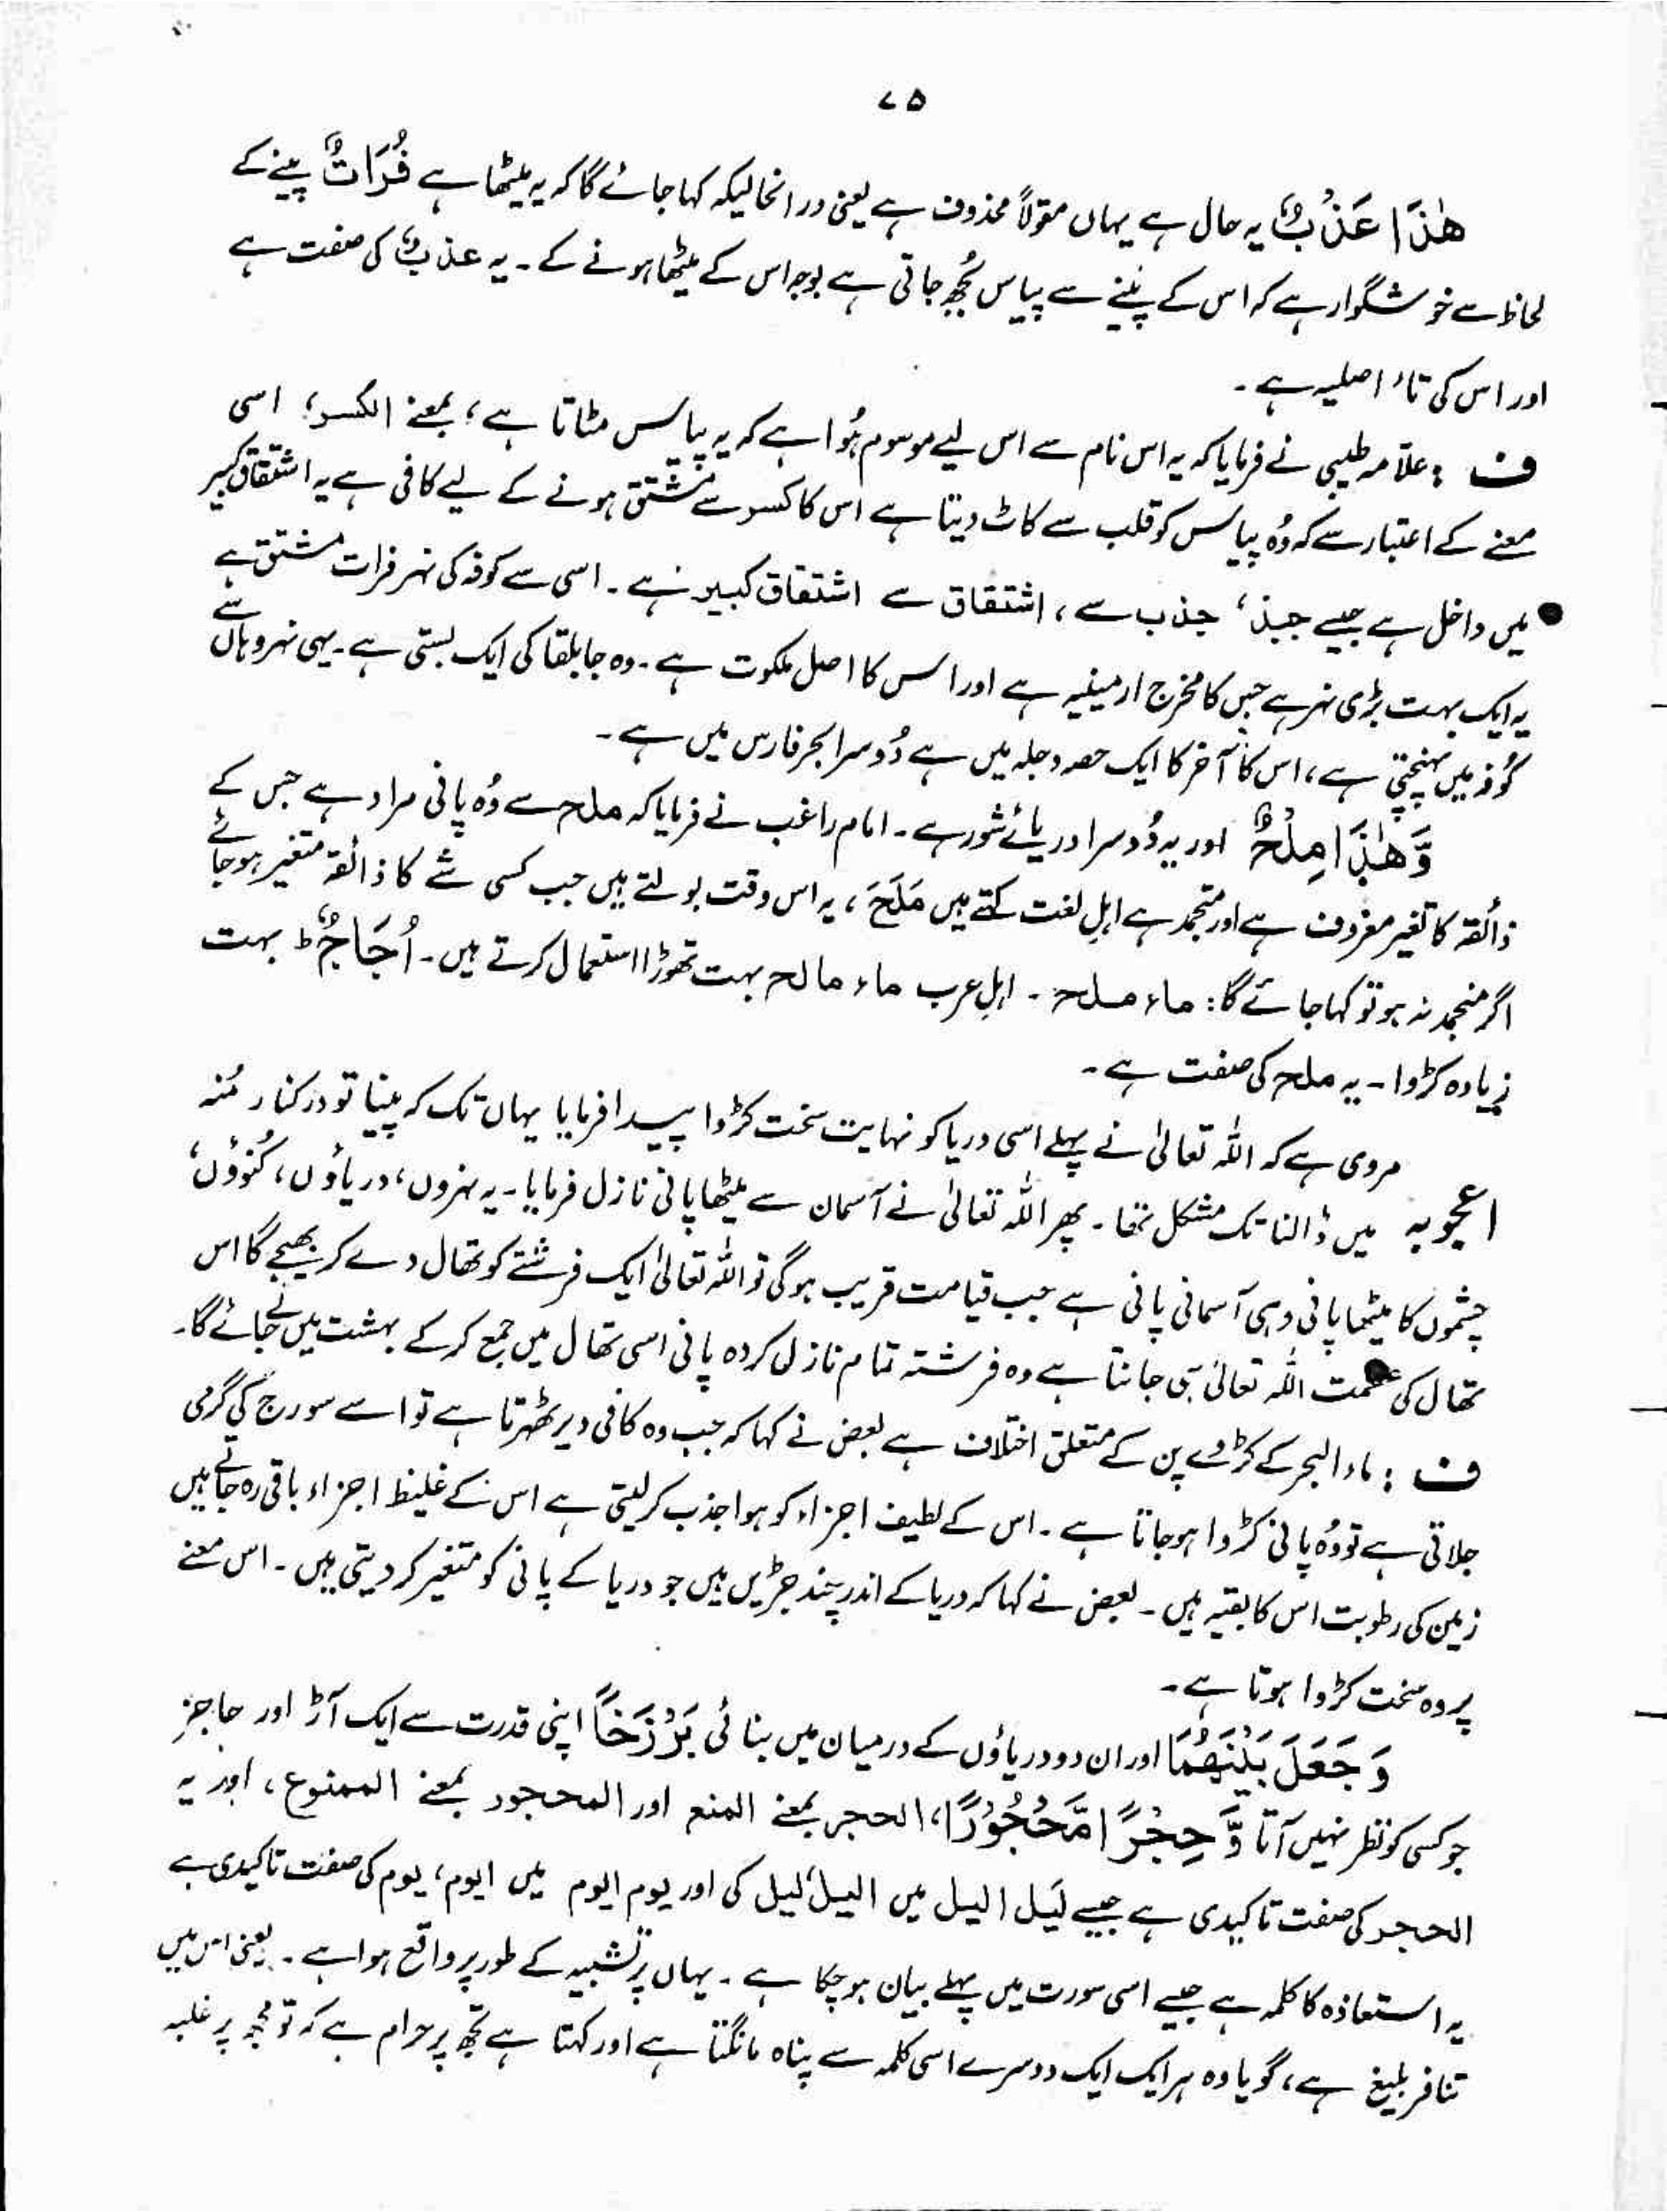 ۷۵
هٰذَا عَذْبٌ یہ حال ہے یہاں مقولاً محذوف ہے یعنی درانحالیکہ کہا جائے گا کہ یہ میٹھا ہے فُرَاتٌ پینے کے
لحاظ سے خوشگوار ہے کہ اس کے پینے سے پیاس بُجھ جاتی ہے بوجہ اس کے میٹھا ہونے کے۔ یہ عذبٌ کی صفت ہے
اور اس کی تاء اصلیہ ہے۔
ف : علّامہ طیبی نے فرمایا کہ یہ اس نام سے اس لیے موسوم ہُوا ہے کہ یہ پیاس مٹاتا ہے، بمعنے الکسر، اسی
معنے کے اعتبار سے کہ وُہ پیاس کو قلب سے کاٹ دیتا ہے اس کا کسر سے مشتق ہونے کے لیے کافی ہے یہ اشتقاق کبیر
میں داخل ہے جیسے جبذ، جذب سے، اشتقاق سے اشتقاق کبیر ہے۔ اسی سے کوفہ کی نہر فرات مشتق ہے
یہ ایک بہت بڑی نہر ہے جس کا مخرج ارمینیہ ہے اور اس کا اصل ملکوت ہے۔ وہ جابلقا کی ایک بستی ہے۔ یہی نہر وہاں سے
کُوفہ میں پہنچتی ہے، اس کا آخر کا ایک حصہ دجلہ میں ہے دُوسرا بحر فارس میں ہے۔
وَّهٰذَا مِلْحٌ اور یہ دُوسرا دریائے شور ہے۔ امام راغب نے فرمایا کہ ملح سے وُہ پانی مراد ہے جس کے
ذائقہ کا تغیر معروف ہے اور متجمد ہے اہلِ لغت کہتے ہیں مَلَحَ، یہ اس وقت بولتے ہیں جب کسی شے کا ذائقہ متغیر ہو جائے
اگر منجمد نہ ہو تو کہا جائے گا: ماء ملح۔ اہلِ عرب ماء مالح بہت تھوڑا استعمال کرتے ہیں۔ اُجَاجٌ ط بہت
زیادہ کڑوا۔ یہ ملح کی صفت ہے۔
مروی ہے کہ اللہ تعالیٰ نے پہلے اسی دریا کو نہایت سخت کڑوا پیدا فرمایا یہاں تک کہ پینا تو درکنار مُنہ
اعجوبہ میں ڈالنا تک مشکل تھا۔ پھر اللہ تعالیٰ نے آسمان سے میٹھا پانی نازل فرمایا۔ یہ نہروں، دریاؤں، کُنوؤں،
چشموں کا میٹھا پانی وہی آسمانی پانی ہے جب قیامت قریب ہوگی تو اللہ تعالیٰ ایک فرشتے کو تھال دے کر بھیجے گا اس
تھال کی عظمت اللہ تعالیٰ ہی جانتا ہے وہ فرشتہ تمام نازل کردہ پانی اسی تھال میں جمع کر کے بہشت میں لے جائے گا۔
ف : ماء البحر کے کڑوے پن کے متعلق اختلاف ہے بعض نے کہا کہ جب وہ کافی دیر ٹھہرتا ہے تو اسے سورج کی گرمی
جلاتی ہے تو وُہ پانی کڑوا ہو جاتا ہے۔ اس کے لطیف اجزاء کو ہوا جذب کر لیتی ہے اس کے غلیظ اجزاء باقی رہ جاتے ہیں
زمین کی رطوبت اس کا بقیہ ہیں۔ بعض نے کہا کہ دریا کے اندر چند جڑیں ہیں جو دریا کے پانی کو متغیر کر دیتی ہیں۔ اس معنے
پر وہ سخت کڑوا ہوتا ہے۔
وَجَعَلَ بَيْنَهُمَا اور ان دو دریاؤں کے درمیان میں بنائی بَرْزَخًا اپنی قدرت سے ایک آڑ اور حاجز
جو کسی کو نظر نہیں آتا وَّ حِجْرًا مَّحْجُوْرًا، الحجر بمعنے المنع اور المحجور بمعنے الممنوع، اور یہ
الحجر کی صفت تاکیدی ہے جیسے لَیل الیل میں الیل، لیل کی اور یوم ایوم میں ایوم، یوم کی صفت تاکیدی ہے
یہ استعاذہ کا کلمہ ہے جیسے اسی سورت میں پہلے بیان ہو چکا ہے۔ یہاں پر تشبیہ کے طور پر واقع ہوا ہے۔ یعنی اس میں
تنافر بلیغ ہے، گویا وہ ہر ایک ایک دوسرے اسی کلمہ سے پناہ مانگتا ہے اور کہتا ہے تجھ پر حرام ہے کہ تو مجھ پر غلبہ